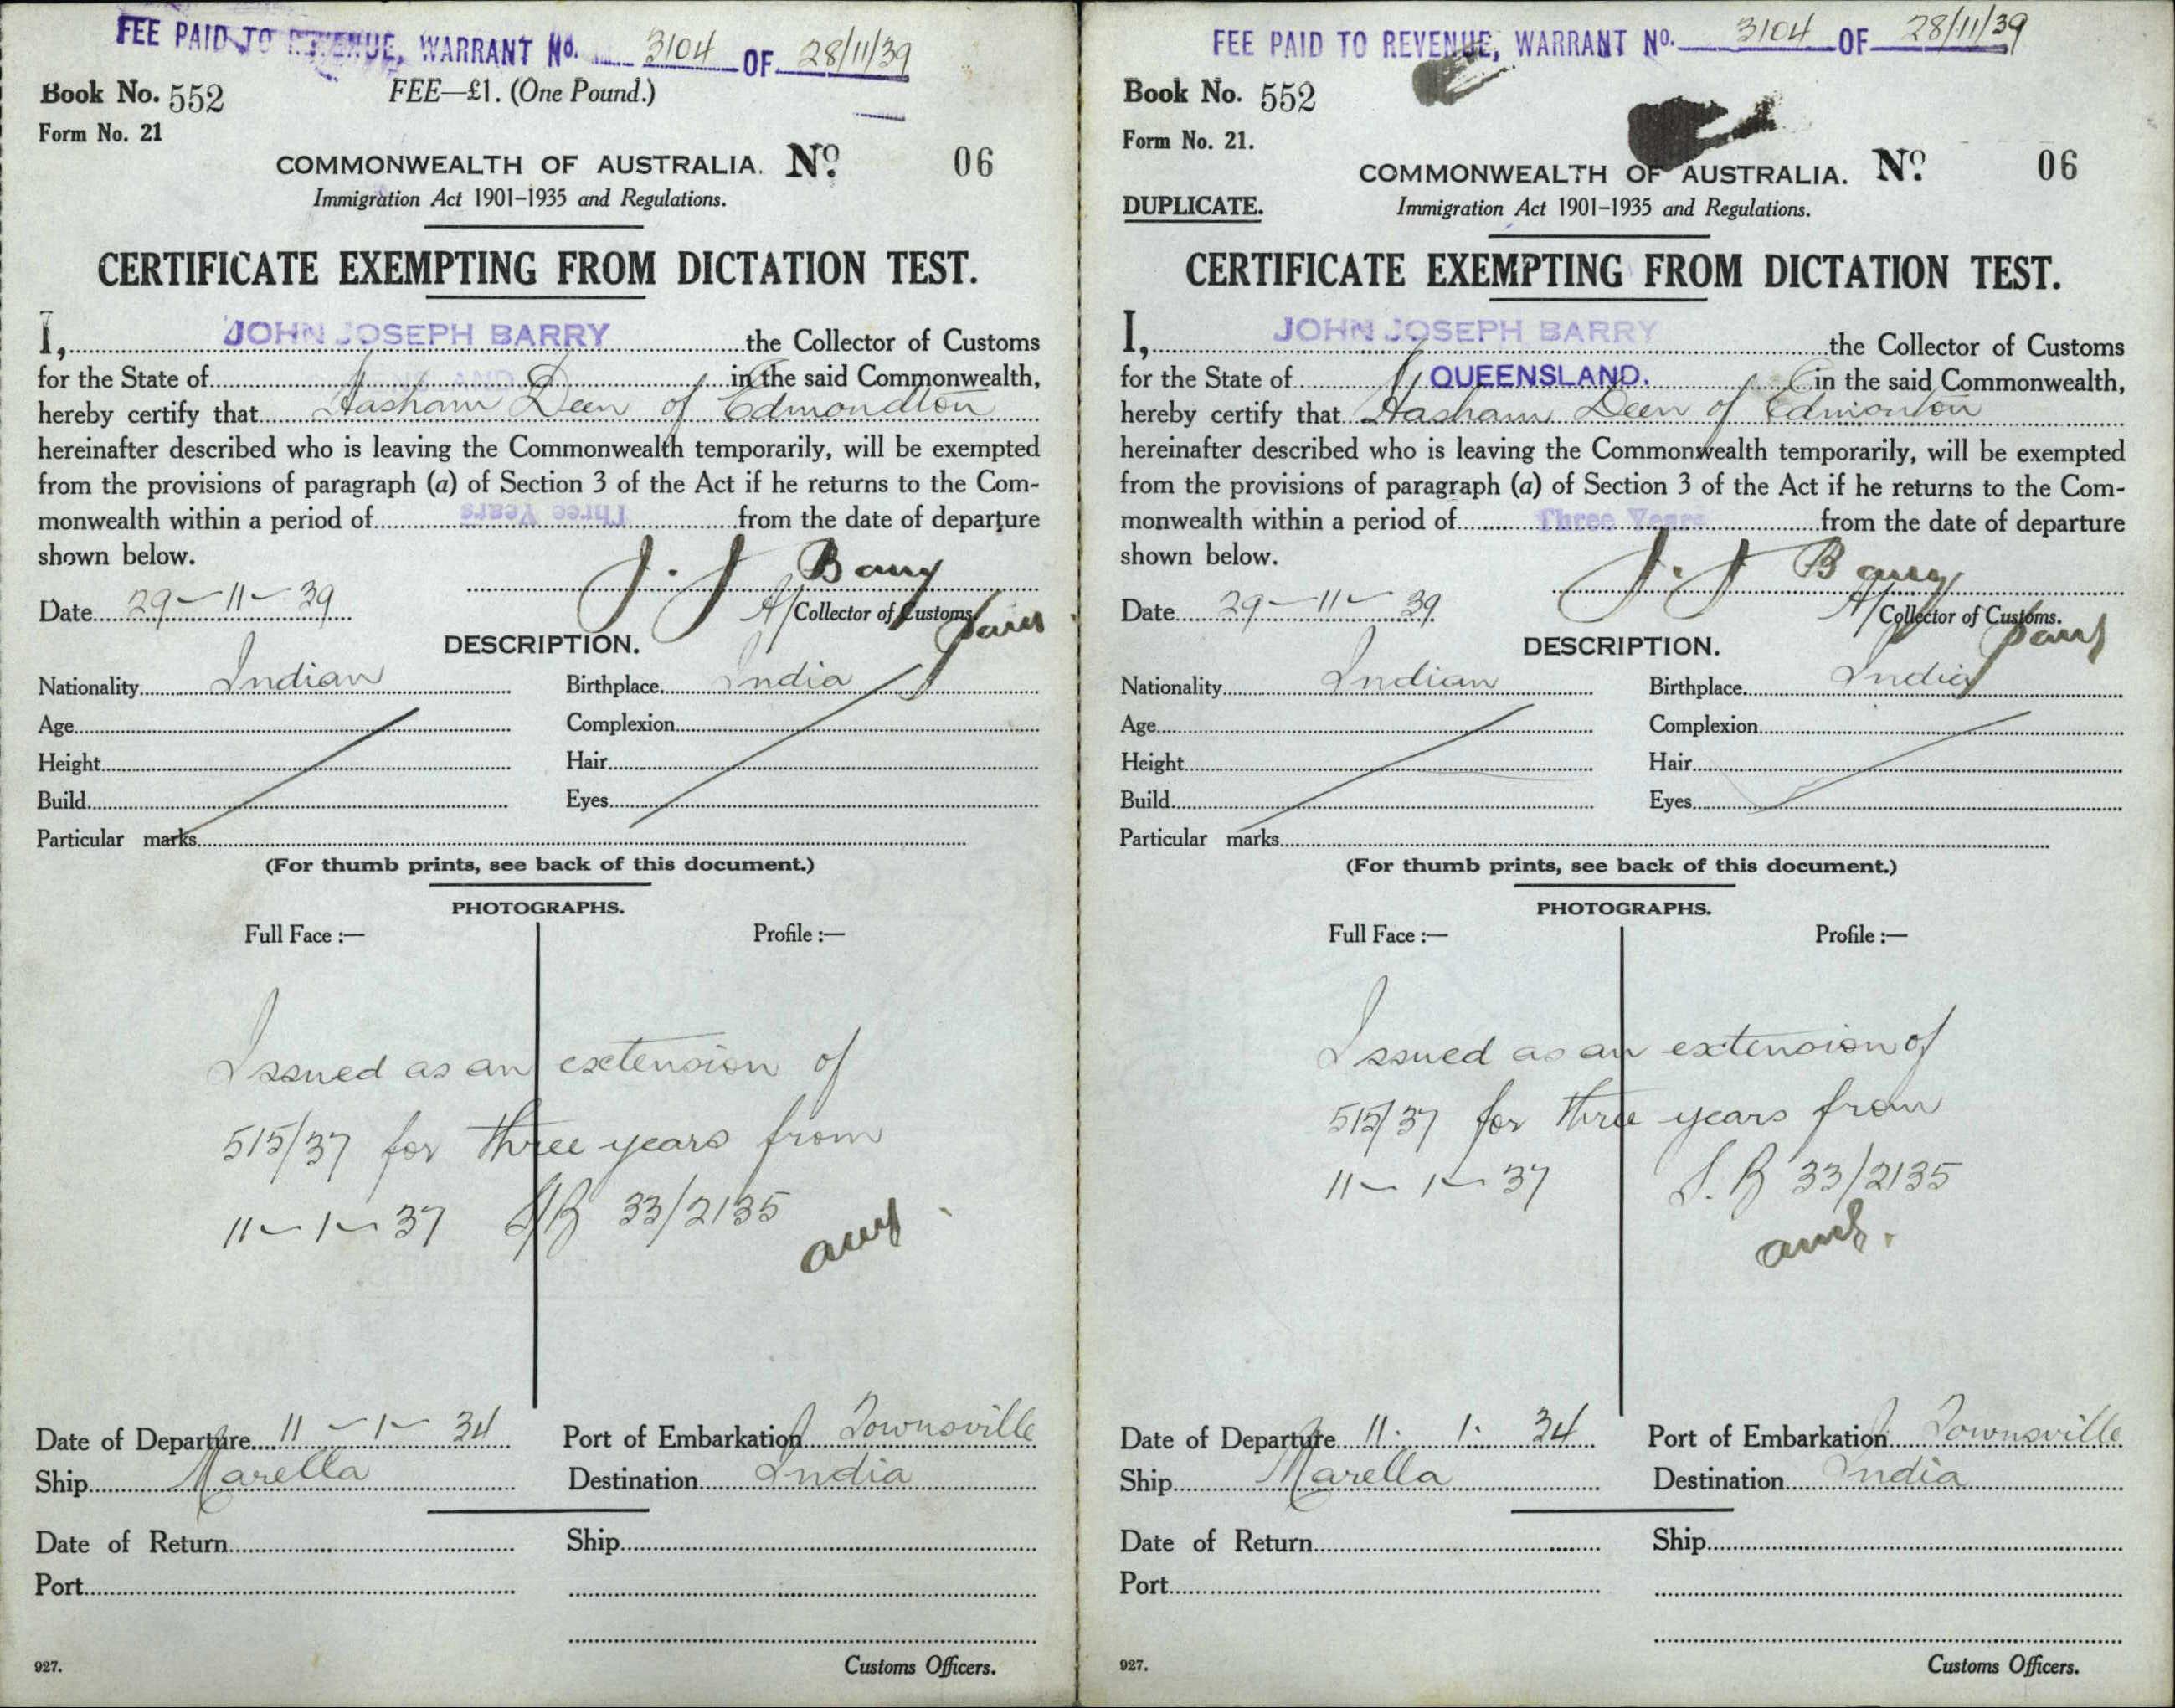 FEE PAID TO REVENUE, WARRANT No. 3104 OF 28/11/39
Book No. 552 FEE—£1. (One Pound.)
Form No. 21
COMMONWEALTH OF AUSTRALIA. No. 06
Immigration Act 1901–1935 and Regulations.
CERTIFICATE EXEMPTING FROM DICTATION TEST.
I, JOHN JOSEPH BARRY the Collector of Customs
for the State of in the said Commonwealth,
hereby certify that Hasham Deen of Edmondton
hereinafter described who is leaving the Commonwealth temporarily, will be exempted
from the provisions of paragraph (a) of Section 3 of the Act if he returns to the Com-
monwealth within a period of Three Years from the date of departure
shown below.
J. J Barry
Date 29-11-39 A/Collector of Customs
DESCRIPTION.
Nationality Indian Birthplace India
Age Complexion
Height Hair
Build Eyes
Particular marks
(For thumb prints, see back of this document.)
PHOTOGRAPHS.
Full Face :— Profile :—
Issued as an extension of
515/37 for three years from
11-1-37 33/2135
Date of Departure 11-1-34 Port of Embarkation Townsville
Ship Marella Destination India
Date of Return Ship
Port
927. Customs Officers.
FEE PAID TO REVENUE, WARRANT No. 3104 OF 28/11/39
Book No. 552
Form No. 21.
COMMONWEALTH OF AUSTRALIA. No. 06
DUPLICATE. Immigration Act 1901–1935 and Regulations.
CERTIFICATE EXEMPTING FROM DICTATION TEST.
I, JOHN JOSEPH BARRY the Collector of Customs
for the State of QUEENSLAND. in the said Commonwealth,
hereby certify that Hasham Deen of Edmonton
hereinafter described who is leaving the Commonwealth temporarily, will be exempted
from the provisions of paragraph (a) of Section 3 of the Act if he returns to the Com-
monwealth within a period of Three Years from the date of departure
shown below.
J. J Barry
Date 29-11-39 A/Collector of Customs.
DESCRIPTION.
Nationality Indian Birthplace India
Age Complexion
Height Hair
Build Eyes
Particular marks
(For thumb prints, see back of this document.)
PHOTOGRAPHS.
Full Face :— Profile :—
Issued as an extension of
515/37 for three years from
11-1-37 33/2135
Date of Departure 11. 1. 34 Port of Embarkation Townsville
Ship Marella Destination India
Date of Return Ship
Port
927. Customs Officers.